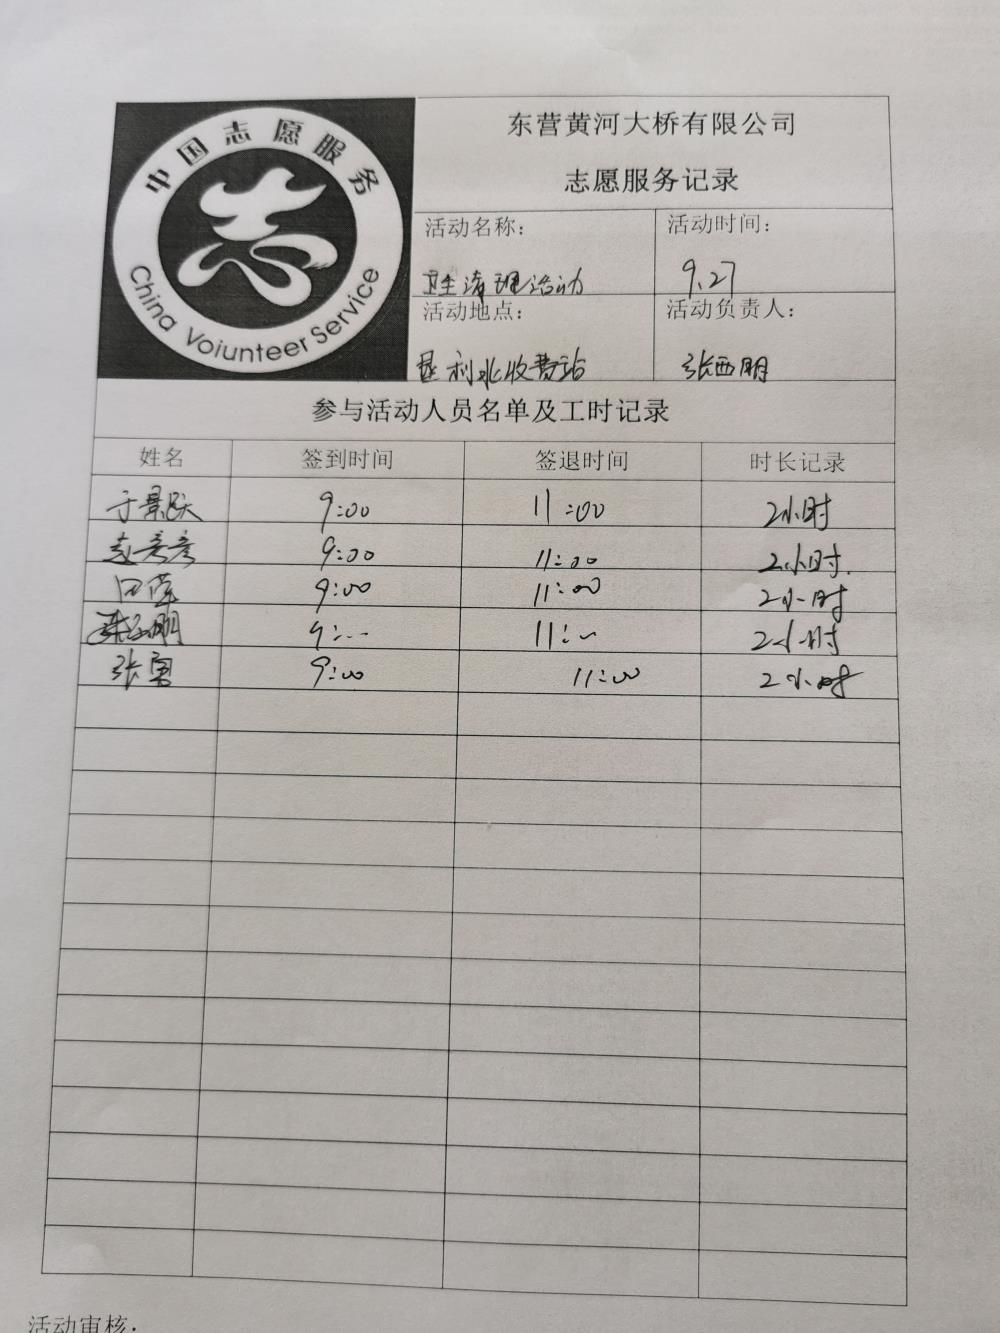 中国志愿服务
志
China Voiunteer Service
东营黄河大桥有限公司
志愿服务记录
活动名称：
活动时间：
卫生清理活动
9.27
活动地点：
活动负责人：
垦利北收费站
张西明
参与活动人员名单及工时记录
姓名 签到时间 签退时间 时长记录
于景跃 9:00 11:00 2小时
9:00 11:00 2小时
田莹 9:00 11:00 2小时
9:00 11:00 2小时
张勇 9:00 11:00 2小时
活动审核：